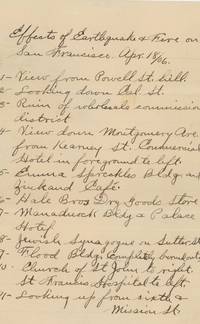 Effects of Earthquake & Fire on
San Francisco. Apr. 18/06.
1- View from Powell St. hill.
2- Looking down Cal St.
3- Ruin of wholesale commission
district
4 View down Montgomery Ave.
from Kearney St. Commercial
Hotel in foreground to left.
5- Emma Spreckles Bldg. and
Zinkand Café.
6- Hale Bros Dry Goods Store
7- Monadnock Bldg & Palace
Hotel
8- Jewish Synagogue on Sutter St.
9- Flood Bldg. completely burned out
10- Church of St John to right.
St. Francis Hospital to left
11- Looking up from sixth &
Mission St.